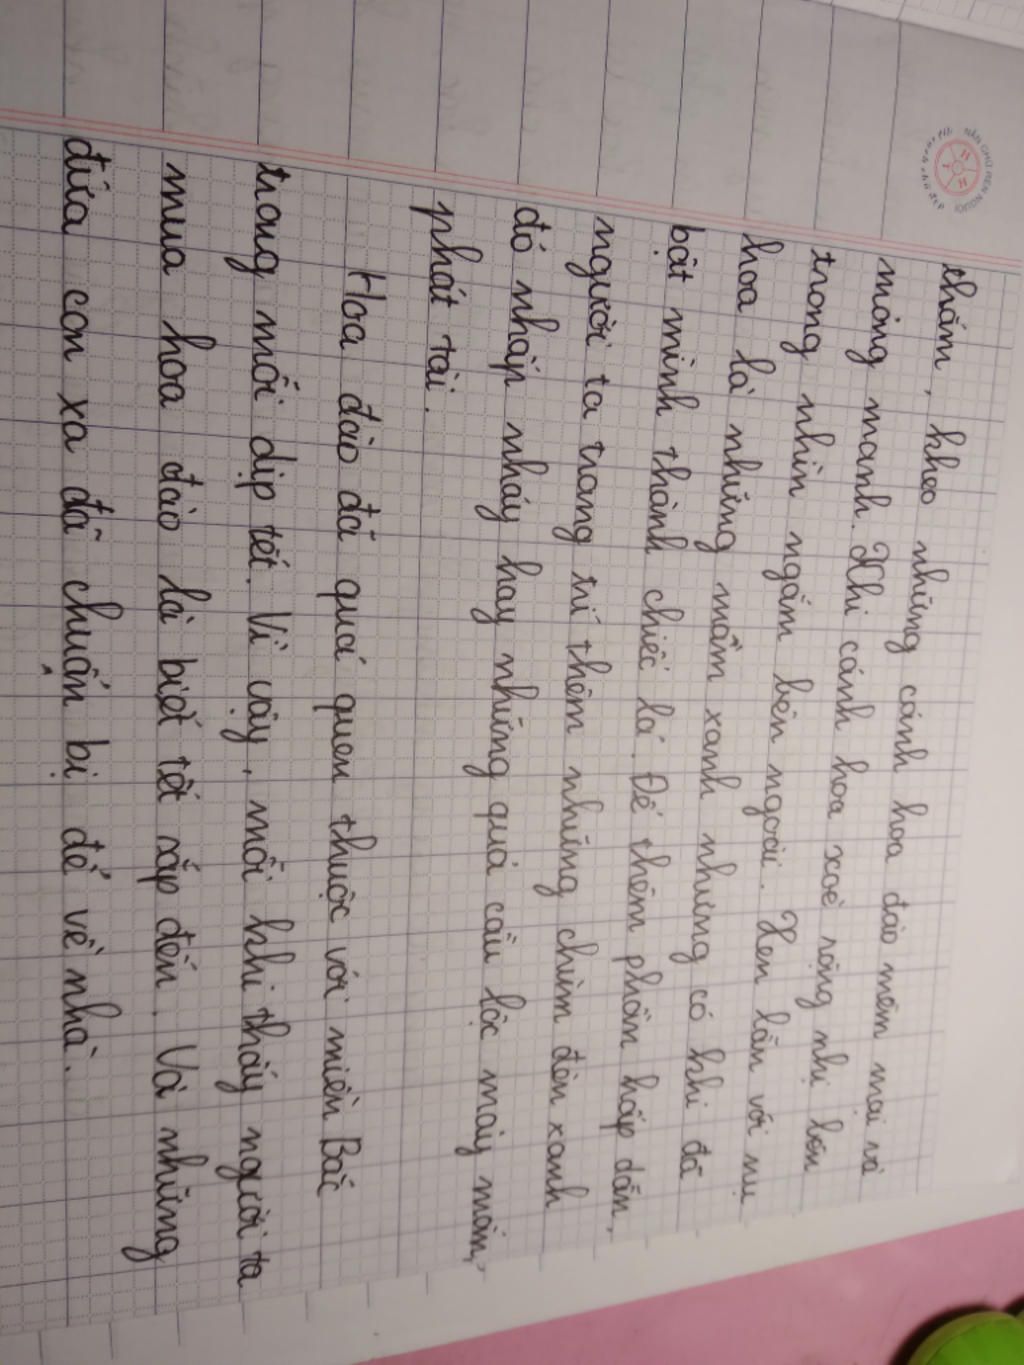 NÂN CHỮ RÈN NGƯỜI
thắm, kheo những cánh hoa đào mềm mại và
mỏng manh. Khi cánh hoa xoè rộng nhị bên
trong nhìn ngắm bên ngoài. Xen lẫn với nụ
hoa là những mầm xanh nhưng có khi đã
bật mình thành chiếc lá. Để thêm phần hấp dẫn,
người ta trang trí thêm những chùm đèn xanh
đỏ nhấp nháy hay những quả cầu lộc may mắn,
phát tài.
Hoa đào đã quá quen thuộc với miền Bắc
trong mỗi dịp tết. Vì vậy, mỗi khi thấy người ta
mua hoa đào là biết tết sắp đến. Và những
đứa con xa đã chuẩn bị để về nhà.